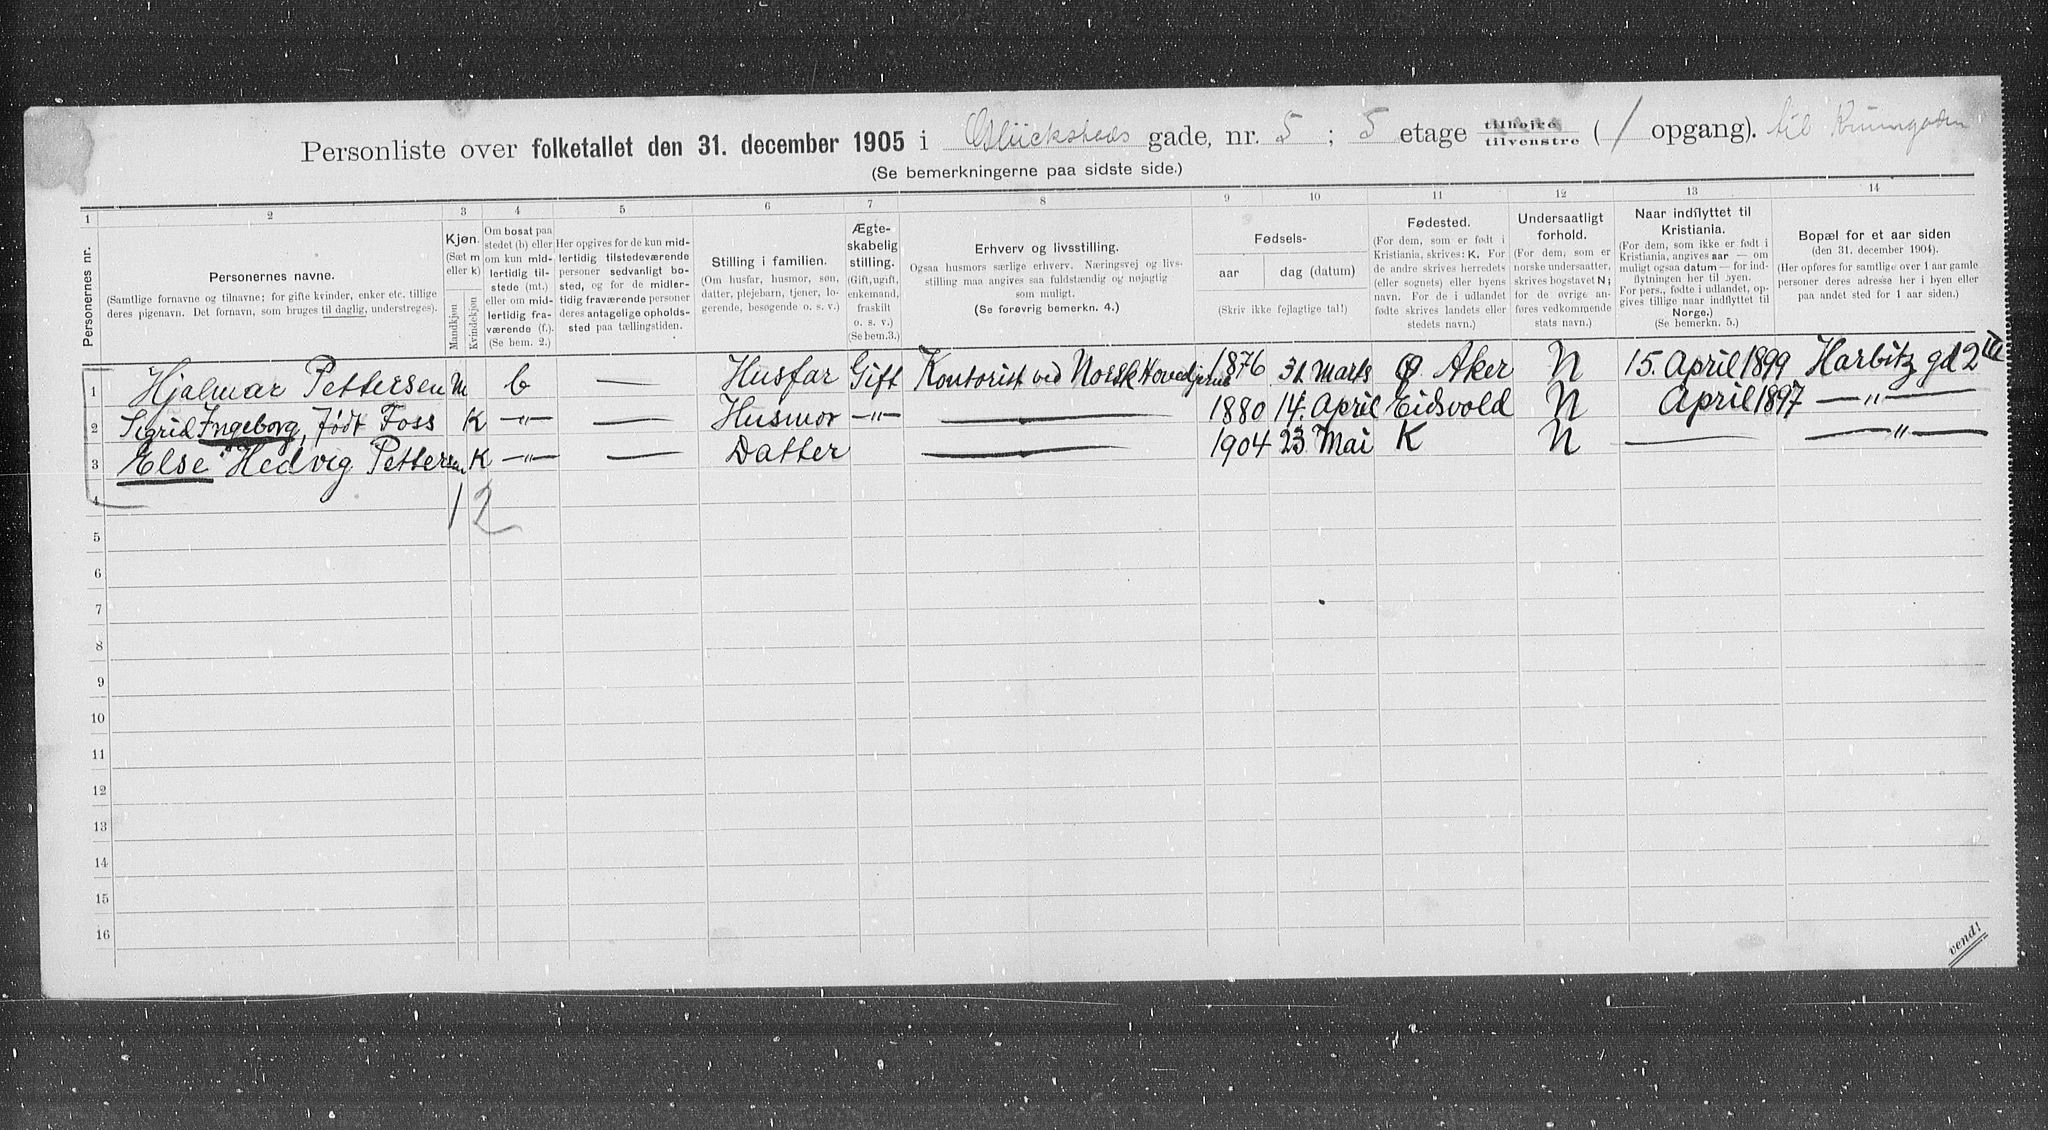 Personliste over folketallet den 31. december 1905 i Glückstads gade, nr. 5 ; 5 etage tilhøire tilvenstre ( 1 opgang). til
(Se bemerkningerne paa sidste side.)
1 2 3 4 5 6 7 8 9 10 11 12 13 14
Personernes nr.
Personernes navne.
(Samtlige fornavne og tilnavne; for gifte kvinder, enker etc. tillige
deres pigenavn. Det fornavn, som bruges til daglig, understreges).
Kjøn.
(Sæt m
eller k)
Mandkjøn
Kvindekjøn
Om bosat paa
stedet (b) eller
om kun mid-
lertidig til-
stede (mt.)
eller om mid-
lertidig fra-
værende (f.).
(Se bem. 2.)
Her opgives for de kun mid-
lertidig tilstedeværende
personer sedvanligt bo-
sted, og for de midler-
tidig fraværende personer
deres antagelige opholds-
sted paa tællingstiden.
Stilling i familien.
(Om husfar, husmor, søn,
datter, plejebarn, tjener, lo-
gerende, besøgende o. s. v.)
Ægte-
skabelig
stilling.
(Gift, ugift,
enkemand,
fraskilt
o. s. v.)
(Se bem. 3.)
Erhverv og livsstilling.
Ogsaa husmors særlige erhverv. Næringsvej og livs-
stilling maa angives saa fuldstændig og nøjagtig
som muligt.
(Se forøvrig bemerkn. 4.)
Fødsels-
aar
dag (datum)
(Skriv ikke fejlagtige tal!)
Fødested.
(For dem, som er født i
Kristiania, skrives: K. For
de andre skrives herredets
(eller sognets) eller byens
navn. For de i udlandet
fødte skrives landets eller
stedets navn.)
Undersaatligt
forhold.
(For dem, som er
norske undersaatter,
skrives bogstavet N;
for de øvrige an-
føres vedkommende
stats navn.)
Naar indflyttet til
Kristiania.
(For dem, som ikke er født i
Kristiania, angives aar — om
muligt ogsaa datum — for ind-
flytningen her til byen.
For pers., fødte i udlandet, op-
gives tillige naar indflyttet til
Norge.)
(Se bemerkn. 5.)
Bopæl for et aar siden
(den 31. december 1904).
(Her opføres for samtlige over 1 aar gamle
personer deres adresse her i byen eller
paa andet sted for 1 aar siden.)
1 Hjalmar Pettersen M b — Husfar Gift Kontorist ved Norsk Hovedjernb 1876 31 Marts Aker N 15. April 1899 Harbitz gd 2 III
2 Sigrid Ingeborg, født Foss K —"— — Husmor —"— — 1880 14. April Eidsvold N April 1897 —"—
3 Else Hedvig Pettersen K —"— — Datter — 1904 23 Mai K N — —"—
4 1 2
5
6
7
8
9
10
11
12
13
14
15
16
vend!